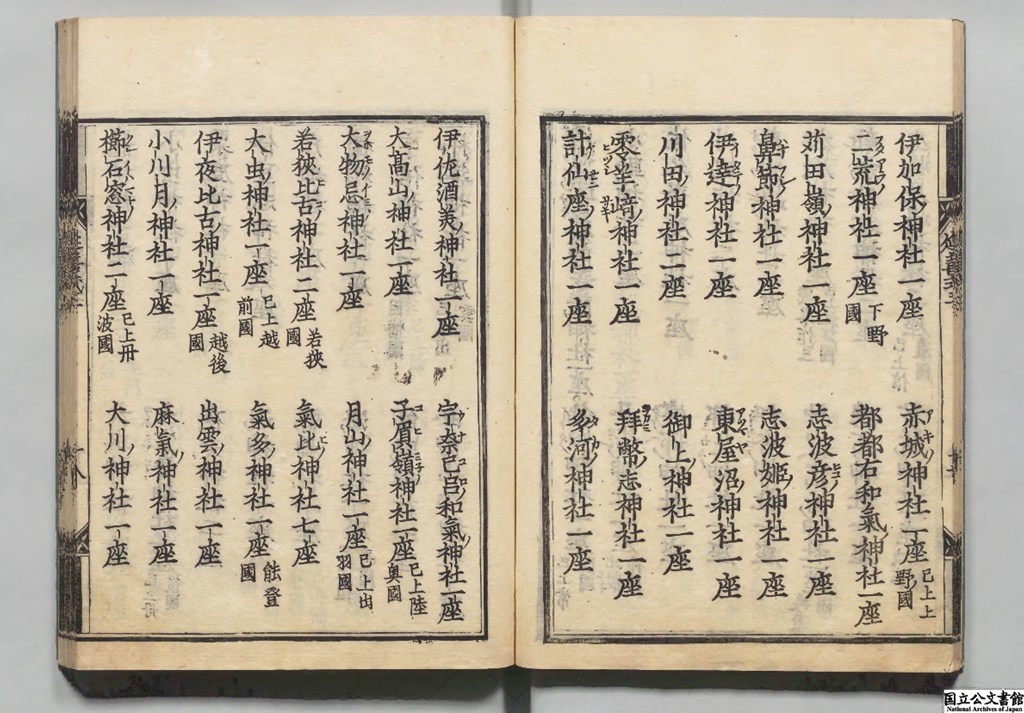 伊加保神社一座 赤城神社一座 已上上野國
二荒神社一座 下野國 都都古和氣神社一座
苅田嶺神社一座 志波彦神社一座
鼻節神社一座 志波姬神社一座
伊達神社一座 東屋沼神社一座
川田神社二座 御上神社一座
零羊﨑神社一座 拜幣志神社一座
計仙座神社一座 多河神社一座
伊佐酒美神社一座 宇奈己呂和氣神社一座
大髙山神社一座 子負嶺神社一座 已上陸奥國
大物忌神社一座 月山神社一座 已上出羽國
若狹比古神社二座 若狹國 氣比神社七座
大虫神社一座 已上越前國 氣多神社一座 能登國
伊夜比古神社一座 越後國 出雲神社一座
小川月神社一座 麻氣神社一座
櫛石窓神社二座 已上丹波國 大川神社一座
国立公文書館
National Archives of Japan